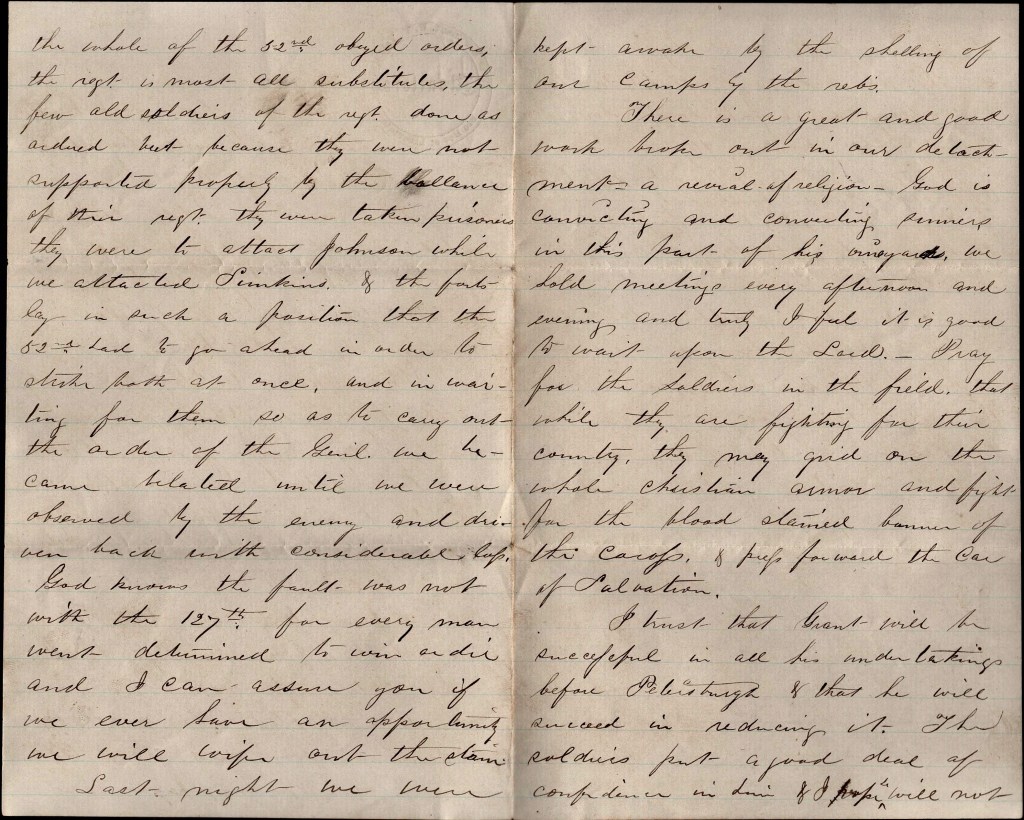 the whole of the 52nd obeyed orders,
the regt. is most all substitutes, the
few old soldiers of the regt. done as
ordered but because they were not
supported properly by the ballance
of their regt. they were taken prisoners
they were to attact Johnson while
we attacted Simkins. & the forts
lay in such a position that the
52nd had to go ahead in order to
strike both at once, and in wai-
ting for them so as to carry out
the order of the Genl. we be-
came belated until we were
observed by the enemy and dri-
ven back with considerable loss.
God knows the fault was not
with the 127th. for every man
went determined to win or die
and I can assure you if
we ever have an opportunity
we will wipe out the stain
Last night we were
kept awake by the shelling of
our camps by the rebs.
There is a great and good
work broke out in our detach-
ment = a revial of religion - God is
convicting and converting sinners
in this part of his vineyard, we
hold meetings every afternoon and
evening and truly I feel it is good
to wait upon the Lord. - Pray
for the soldiers in the field. that
while they are fighting for their
country, they may grid on the
whole christian armor and fight
for the blood stained banner of
the cross. & press forward the car
of Salvation.
I trust that Grant will be
successful in all his undertakings
before Petersburgh & that he will
succeed in reducing it. The
soldiers put a good deal of
confidence in him & I hope will not